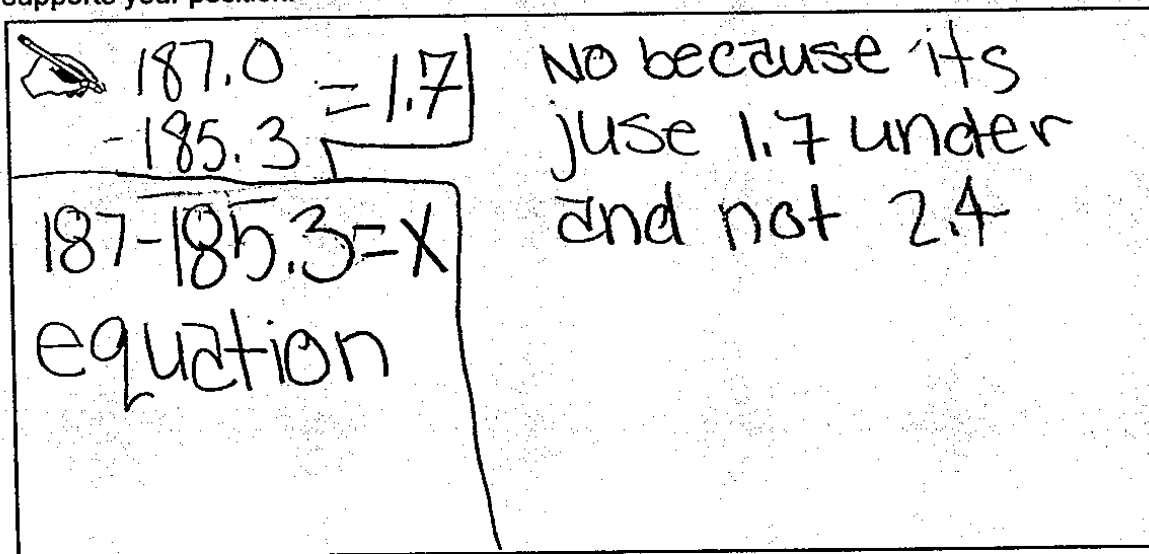 supports your position.
187.0
-185.3 = 1.7
187-185.3=X
equation
No because its
juse 1.7 under
and not 2.4